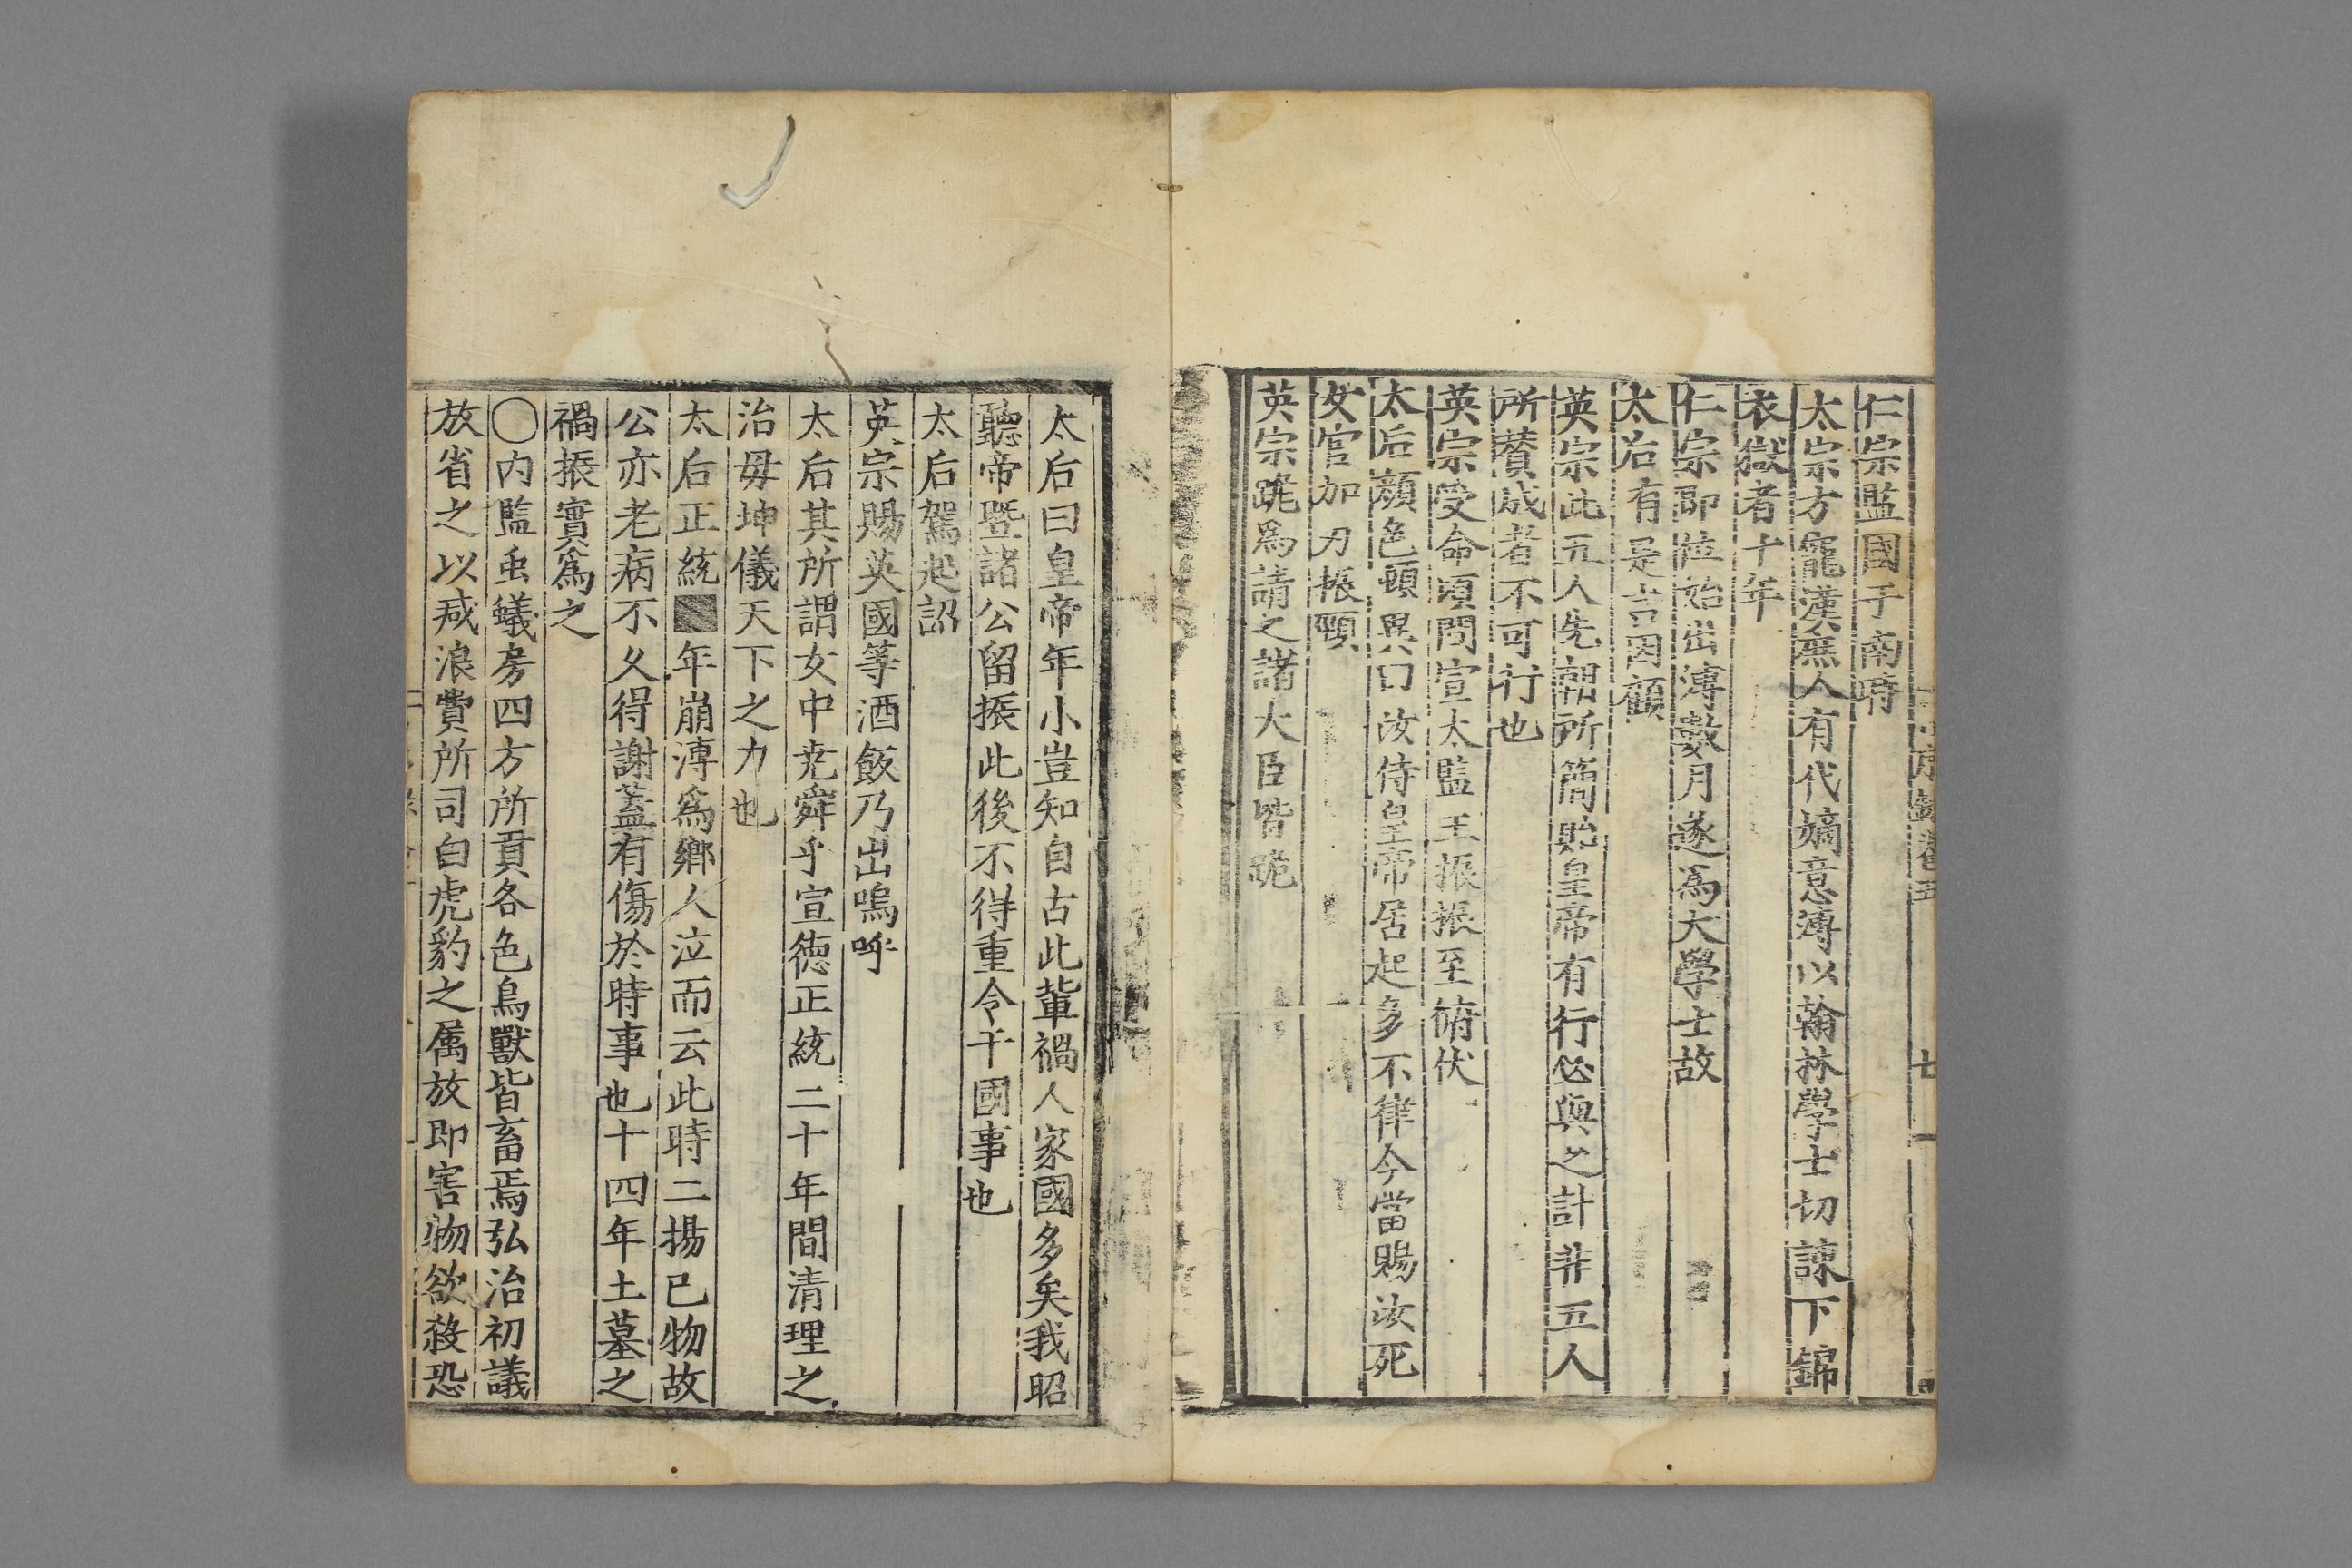 仁宗監國于南時
太宗方寵漢庶人有代嫡意溥以翰林學士切諫下錦
衣獄者十年
仁宗即位始出溥數月遂爲大學士故
太后有是言因顧
英宗此五人先朝所簡貽皇帝有行必與之計非五人
所賛成者不可行也
英宗受命頃間宣太監王振振至俯伏
太后顏色頓異曰汝侍皇帝居起多不律今當賜汝死
女官加刃振頸
英宗跪爲請之諸大臣皆跪
太后曰皇帝年小豈知自古此軰禍人家國多矣我昭
聽帝曁諸公留振此後不得重令干國事也
太后駕起詔
英宗賜英國等酒飯乃出嗚呼
太后其所謂女中尭舜乎宣德正統二十年間清理之
治毋坤儀天下之力也
太后正統年崩溥爲鄉人泣而云此時二揚已物故
公亦老病不久得謝蓋有傷於時事也十四年土墓之
禍振實爲之
〇内監䖝蟻房四方所貢各色鳥獸皆畜焉弘治初議
放省之以减浪費所司白虎豹之属放即害物欲殺恐